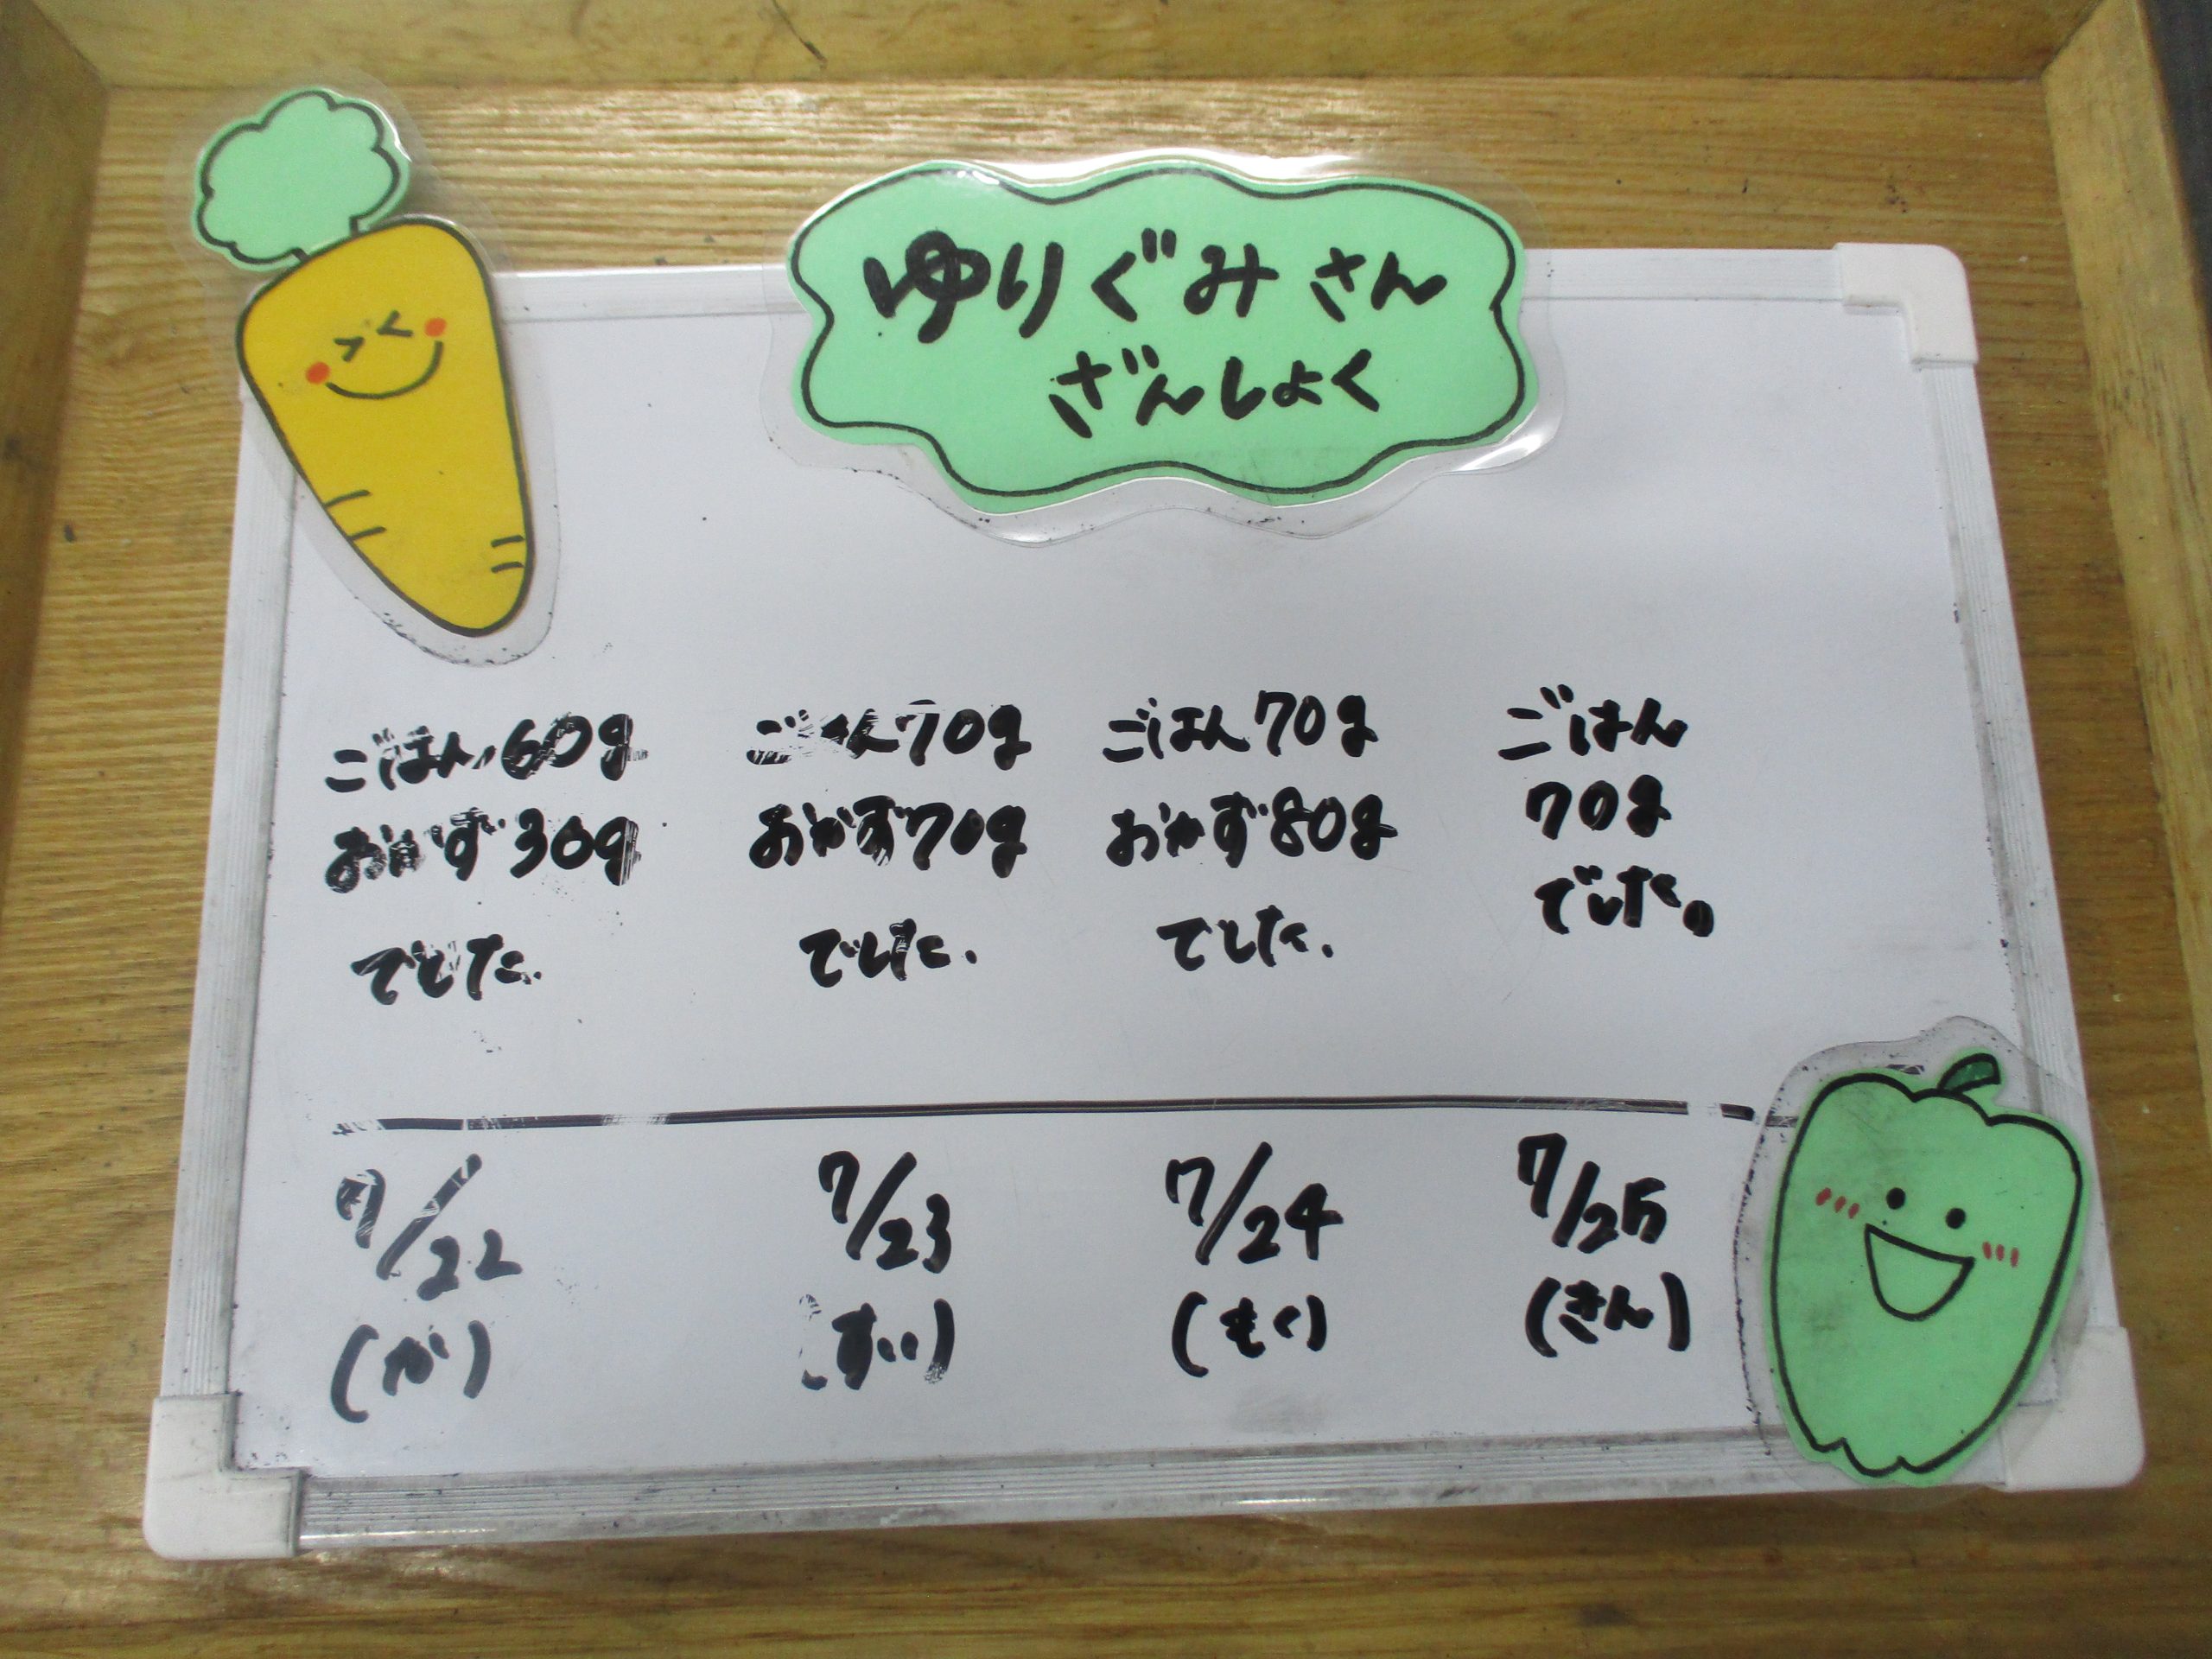 ゆりぐみさん
ざんしょく
ごはん60g
おかず30g
でした.
ごはん70g
おかず70g
でした.
ごはん70g
おかず80g
でした.
ごはん
70g
でした。
7/22
(か)
7/23
(すい)
7/24
(もく)
7/25
(きん)